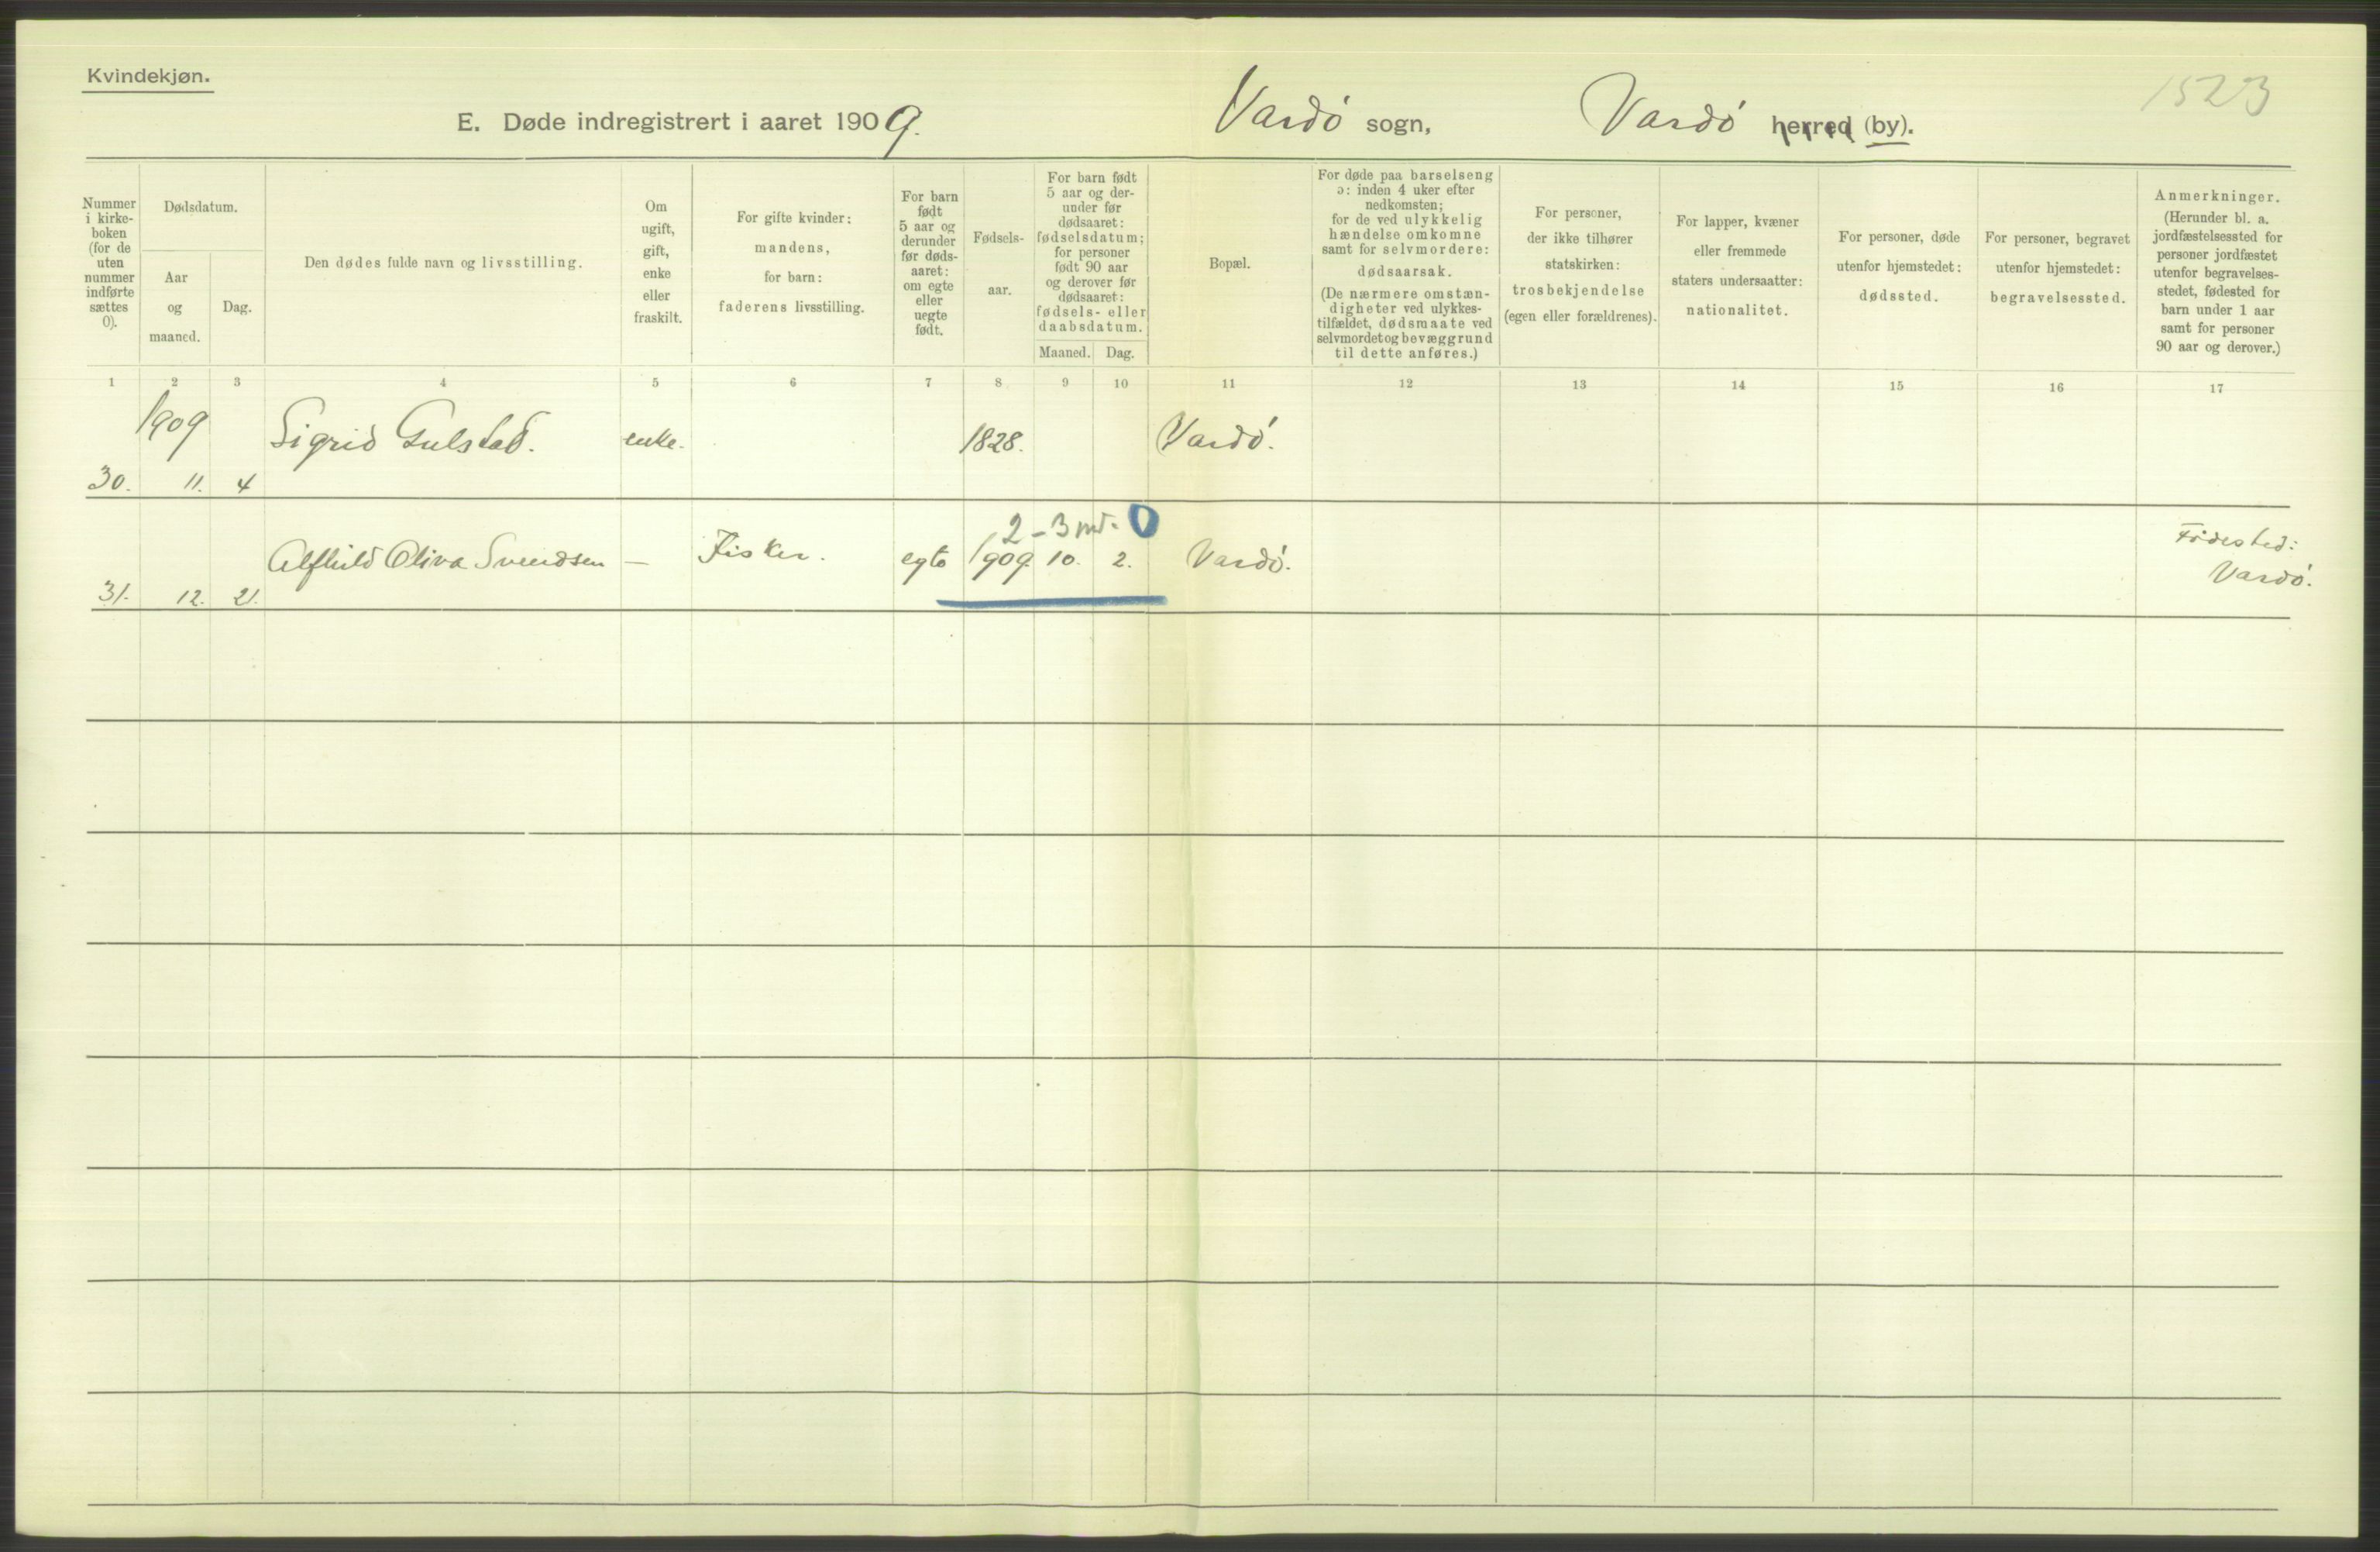 Kvindekjøn.
1523
E. Døde indregistrert i aaret 1909.
Vardö sogn,
Vardö herred (by).
Nummer
i kirke-
boken
(for de
uten
nummer
indførte
sættes
0).
Dødsdatum.
Aar
og
maaned.
Dag.
Den dødes fulde navn og livsstilling.
Om
ugift,
gift,
enke
eller
fraskilt.
For gifte kvinder:
mandens,
for barn:
faderens livsstilling.
For barn
født
5 aar og
derunder
før døds-
aaret:
om egte
eller
uegte
født.
Fødsels-
aar.
For barn født
5 aar og der-
under før
dødsaaret:
fødselsdatum;
for personer
født 90 aar
og derover før
dødsaaret:
fødsels- eller
daabsdatum.
Maaned.
Dag.
Bopæl.
For døde paa barselseng
ɔ: inden 4 uker efter
nedkomsten;
for de ved ulykkelig
hændelse omkomne
samt for selvmordere:
dødsaarsak.
(De nærmere omstæn-
digheter ved ulykkes-
tilfældet, dødsmaate ved
selvmordet og bevæggrund
til dette anføres.)
For personer,
der ikke tilhører
statskirken:
trosbekjendelse
(egen eller forældrenes).
For lapper, kvæner
eller fremmede
staters undersaatter:
nationalitet.
For personer, døde
utenfor hjemstedet:
dødssted.
For personer, begravet
utenfor hjemstedet:
begravelsessted.
Anmerkninger.
(Herunder bl. a.
jordfæstelsessted for
personer jordfæstet
utenfor begravelses-
stedet, fødested for
barn under 1 aar
samt for personer
90 aar og derover.)
1 2 3 4 5 6 7 8 9 10 11 12 13 14 15 16 17
1909
30. 11. 4 Sigrid Gulstad. enke. 1828. Vardö.
2-3 md. 0
31. 12. 21. Alfhild Oliva Svendsen — Fisker. egte 1909. 10. 2. Vardö.
Födested:
Vardö.